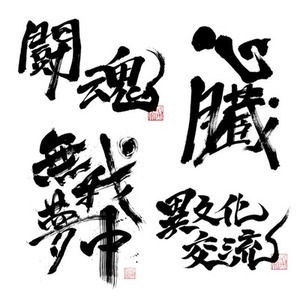 闘魂
心臓
無我
夢中
異文化
交流